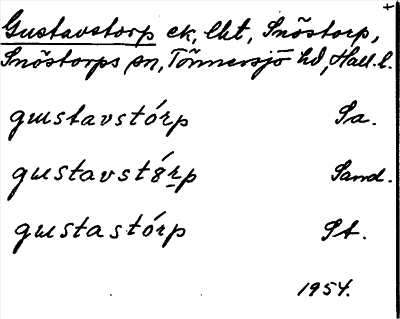 +
Gustavstorp ek, lht, Snöstorp,
Snöstorps sn, Tönnersjö hd, Hall. l.
gustavstórp Sa.
gustavst8́rp Sand.
gustastórp St.
1954.